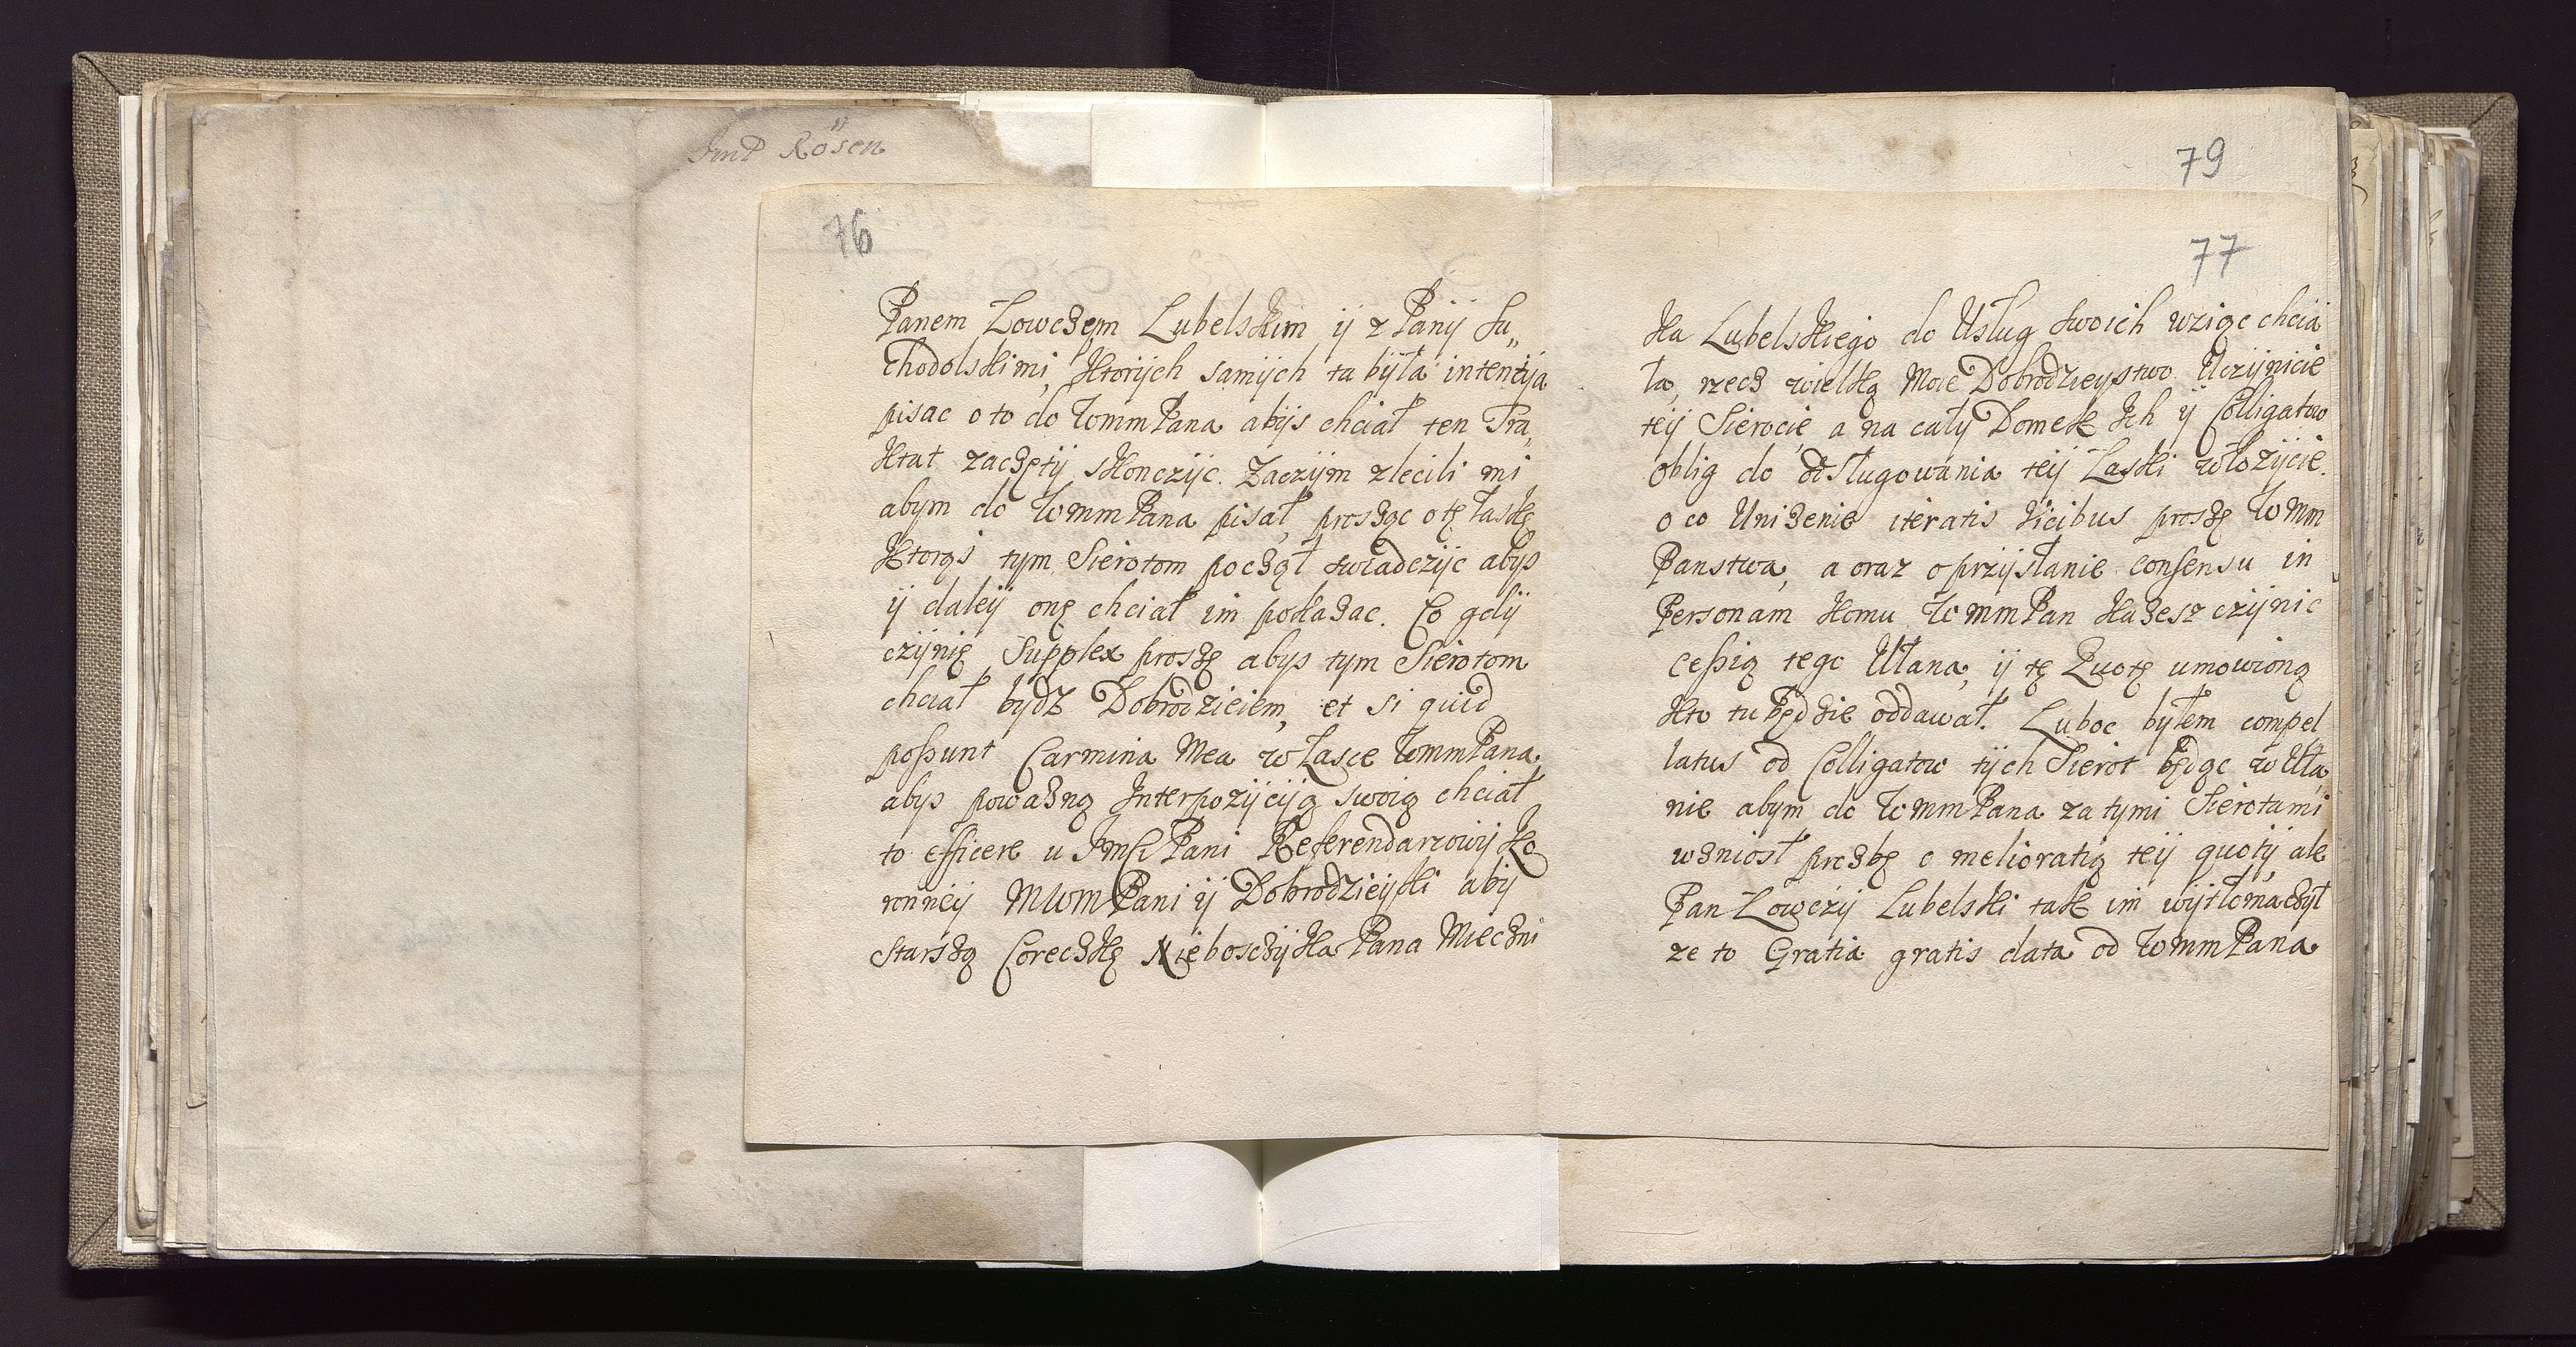 JmP Rösen
76
Panem Łowczym Lubelskim ij z Panij Su„
chodolskimi, ktorijch samijch ta bijła intentija
pisac o to do WMMPana abijs chciał ten Tra„
ktat zaczętij skonczijc. Zaczijm zlecili mi
abym do WMMPana pisał, prosząc o tę łaskę
ktorąs tym Sierotom począł swiadczijc abys
ij daleij onę chciał im pokazac. Co gdij
czijnię Supplex proszę abys tym Sierotom
chciał bydz Dobrodzieiem, et si quid
possunt Carmina Mea w Łasce WMMPana
abys poważną Interpozijciją swoią chciał
to efficere u JmSci Pani Referendarzowij Ko
ronneij MWMPani ij Dobrodzieijki abij
Starszą Coreczkę Nieboszczijka Pana Mieczni
79
77
ka Lubelskiego do Usług swoich wziąc chcia
ła, rzecz wielką Moie Dobrodzieystwo Uczijnicie
teij Sierocie, a na cały Domek Ich ij Colligatow
oblig do odsługowania teij Łaski włożijcie.
o co Uniżenie iteratis vicibus proszę WMM
Panstwa, a oraz o przijsłanie consensu in
Personam komu WMMPan każesz czijnic
cessią tego Ułana, ij tę Quotę umowioną
kto tu będzie oddawał. Luboc byłem compel„
latus od Colligatow tijch Sierot będąc w Uła„
nie abym do WMMPana za tymi Sierotami
wzniosł prozbę o melioratią teij quotij, ale
Pan Łowczij Lubelski tak im wijtłomaczył
ze to Gratia gratis data od WMMPana